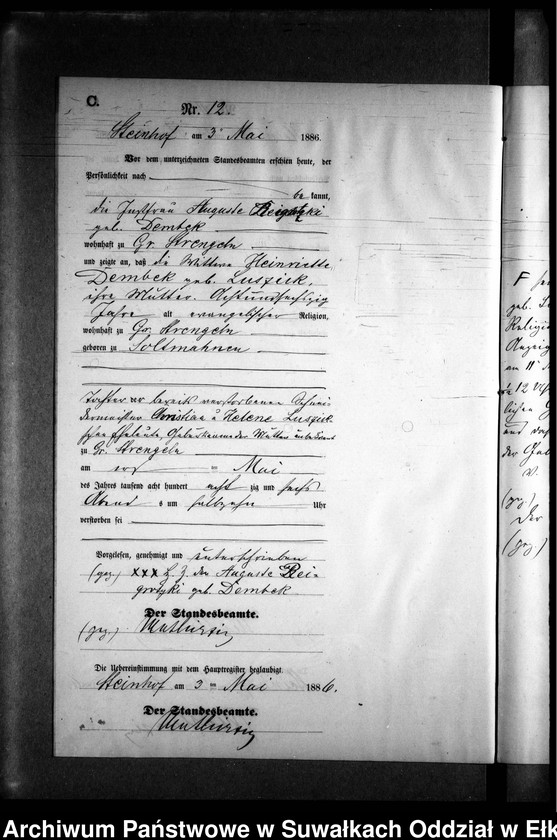 C.
Nr. 12.
Steinhof am 3 Mai 1886.
Vor dem unterzeichneten Standesbeamten erschien heute, der
Persönlichkeit nach
be kannt,
die Instfrau Auguste
geb. Dembek
wohnhaft zu Gr. Strengeln
und zeigte an, daß die Wittwe Heinriette
Dembek geb. Luszick,
ihre Mutter. Achtundsechszig
Jahre alt evangelischer Religion,
wohnhaft zu Gr. Strengeln
geboren zu Soltmahnen
Tochter der bereits verstorbenen Schnei
dermeister Christian u Helene Luszick
schen Eheleute, Geburtsname der Mutter unbekannt
zu Gr. Strengeln
am ersten Mai
des Jahres tausend acht hundert acht zig und sechs
Abend s um halbzehn Uhr
verstorben sei
Vorgelesen, genehmigt und unterschrieben
(gez.) xxx H. Z. der Auguste Rei-
geb. Dembek
Der Standesbeamte.
(gez.)
Die Uebereinstimmung mit dem Hauptregister beglaubigt.
Steinhof am 3 ten Mai 1886.
Der Standesbeamte.
F
geb. L
Religio
Anzeig
am 11
12 Uh
lichen G
und da
der Gal
V.
(gez.)
Der
(gez.)
Archiwum Państwowe w Suwałkach Oddział w Ełk